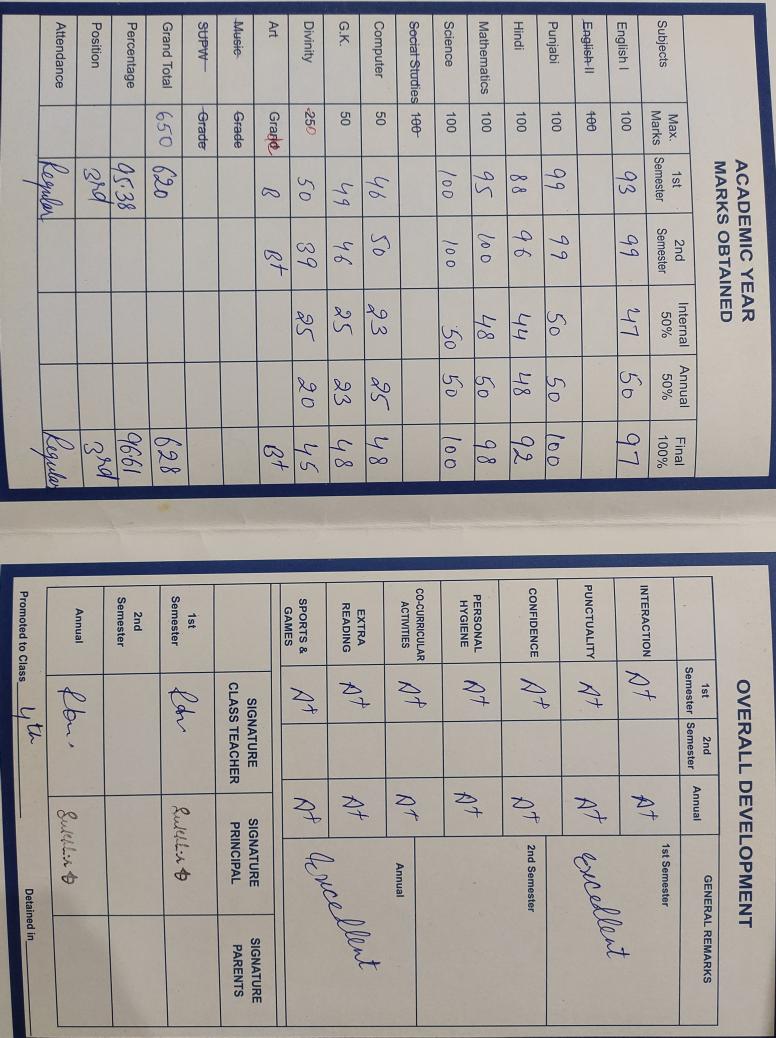 ACADEMIC YEAR
MARKS OBTAINED
Subjects Max. Marks 1st Semester 2nd Semester Internal 50% Annual 50% Final 100%
English I 100 93 99 47 50 97
English II 100
Punjabi 100 99 99 50 50 100
Hindi 100 88 96 44 48 92
Mathematics 100 95 100 48 50 98
Science 100 100 100 50 50 100
Social Studies 100
Computer 50 46 50 23 25 48
G.K. 50 49 46 25 23 48
Divinity 50 39 25 20 45
Art Grade B B+ B+
Music Grade
SUPW Grade
Grand Total 650 620 628
Percentage 95.38 96.61
Position 3rd 3rd
Attendance Regular Regular
OVERALL DEVELOPMENT
1st Semester 2nd Semester Annual GENERAL REMARKS
INTERACTION A+ A+ 1st Semester
PUNCTUALITY A+ A+ excellent
CONFIDENCE A+ A+ 2nd Semester
PERSONAL HYGIENE A+ A+
CO-CURRICULAR ACTIVITIES A+ A+ Annual
EXTRA READING A+ A+ excellent
SPORTS & GAMES A+ A+
SIGNATURE CLASS TEACHER SIGNATURE PRINCIPAL SIGNATURE PARENTS
1st Semester
2nd Semester
Annual
Promoted to Class 4th Detained in